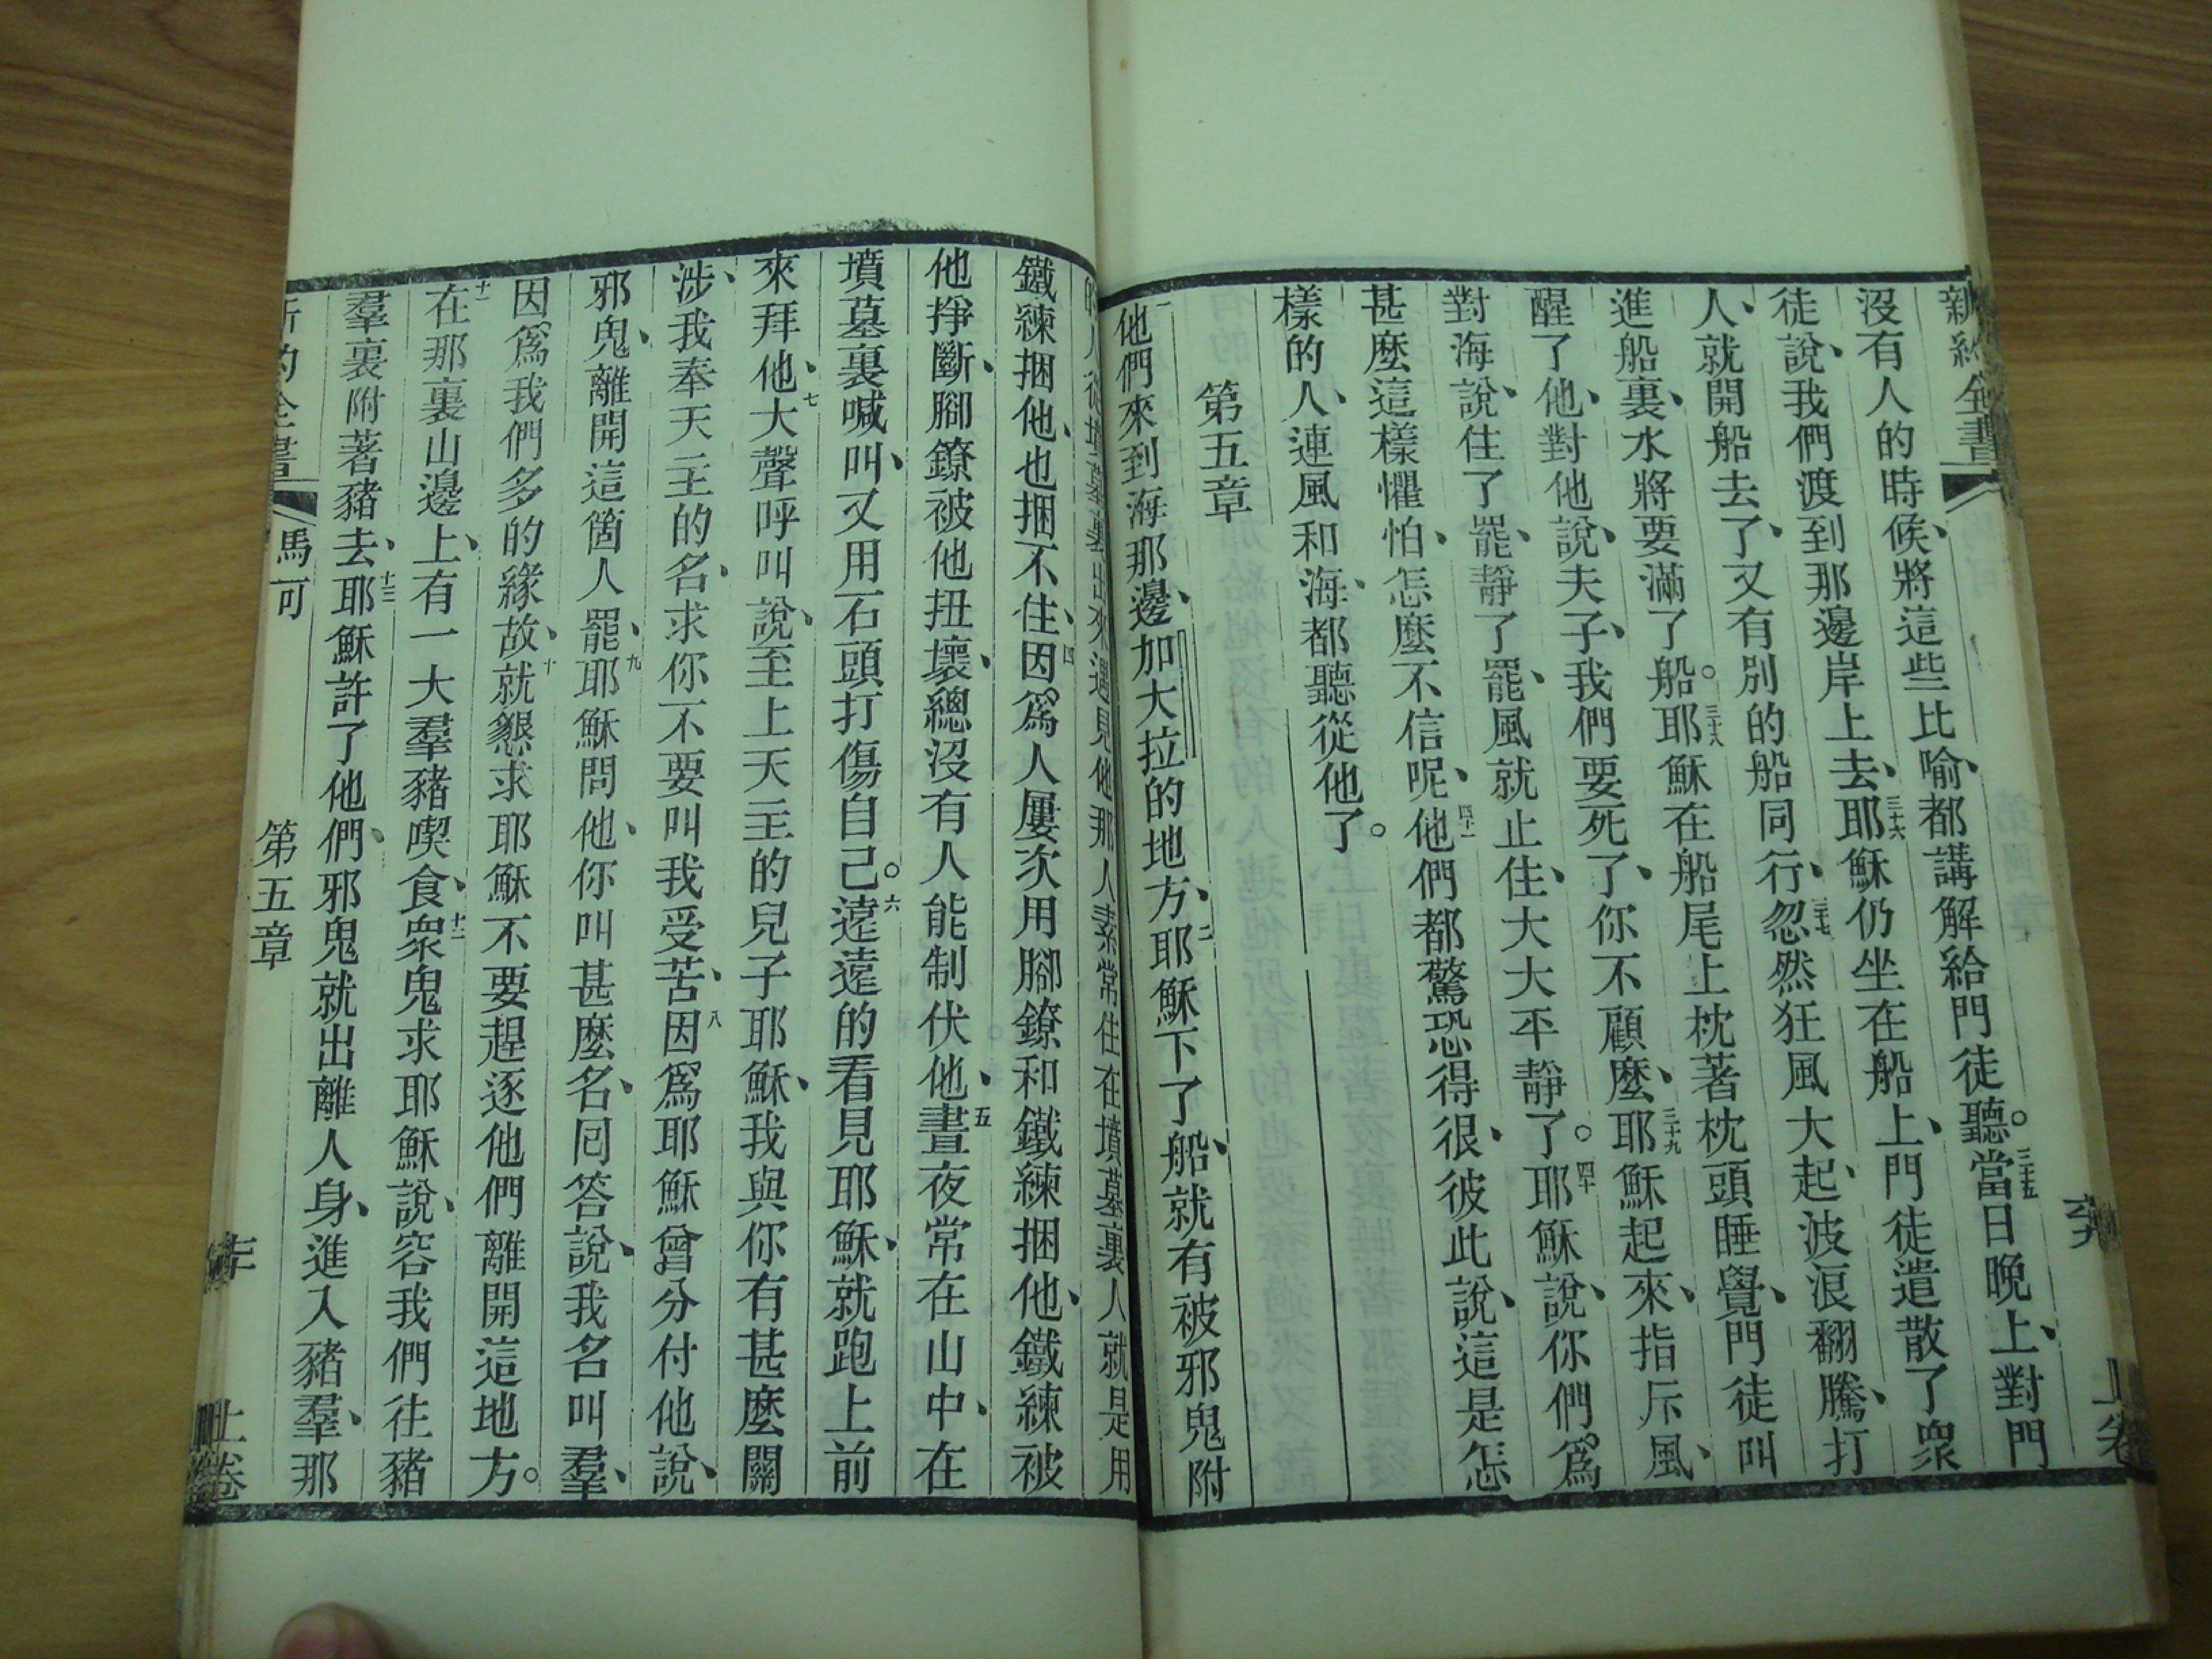 新約全書
沒有人的時候、將這些比喻、都講解給門徒聽。三十五當日晚上、對門
徒說、我們渡到那邊岸上去、三十六耶穌仍坐在船上、門徒遣散了衆
人、就開船去了、又有別的船同行、三十七忽然狂風大起、波浪翻騰、打
進船裏、水將要滿了船。三十八耶穌在船尾上枕著枕頭睡覺、門徒叫
醒了他、對他說、夫子、我們要死了、你不顧麼、三十九耶穌起來、指斥風、
對海說、住了罷、靜了罷、風就止住、大大平靜了。四十耶穌說、你們爲
甚麼這樣懼怕、怎麼不信呢、四十一他們都驚恐得很、彼此說、這是怎
樣的人、連風和海、都聽從他了。
第五章
一他們來到海那邊、加大拉的地方、二耶穌下了船、就有被邪鬼附
的人從墳墓裏出來遇見他那人素常住在墳墓裏人就是用
鐵練捆他、也捆不住、四因爲人屢次用腳鐐和鐵練捆他、鐵練被
他掙斷、腳鐐被他扭壞、總沒有人能制伏他、五晝夜常在山中、在
墳墓裏喊叫、又用石頭打傷自己。六遠遠的看見耶穌、就跑上前
來拜他、七大聲呼叫說、至上天主的兒子耶穌、我與你有甚麼關
涉、我奉天主的名、求你不要叫我受苦、八因爲耶穌曾分付他說、
邪鬼、離開這箇人罷、九耶穌問他、你叫甚麼名、回答說、我名叫羣、
因爲我們多的緣故、十就懇求耶穌不要趕逐他們離開這地方。
十一在那裏山邊上、有一大羣豬喫食、十二衆鬼求耶穌說、容我們往豬
羣裏附著豬去、十三耶穌許了他們、邪鬼就出離人身、進入豬羣、那
新約全書 馬可 第五章 上卷